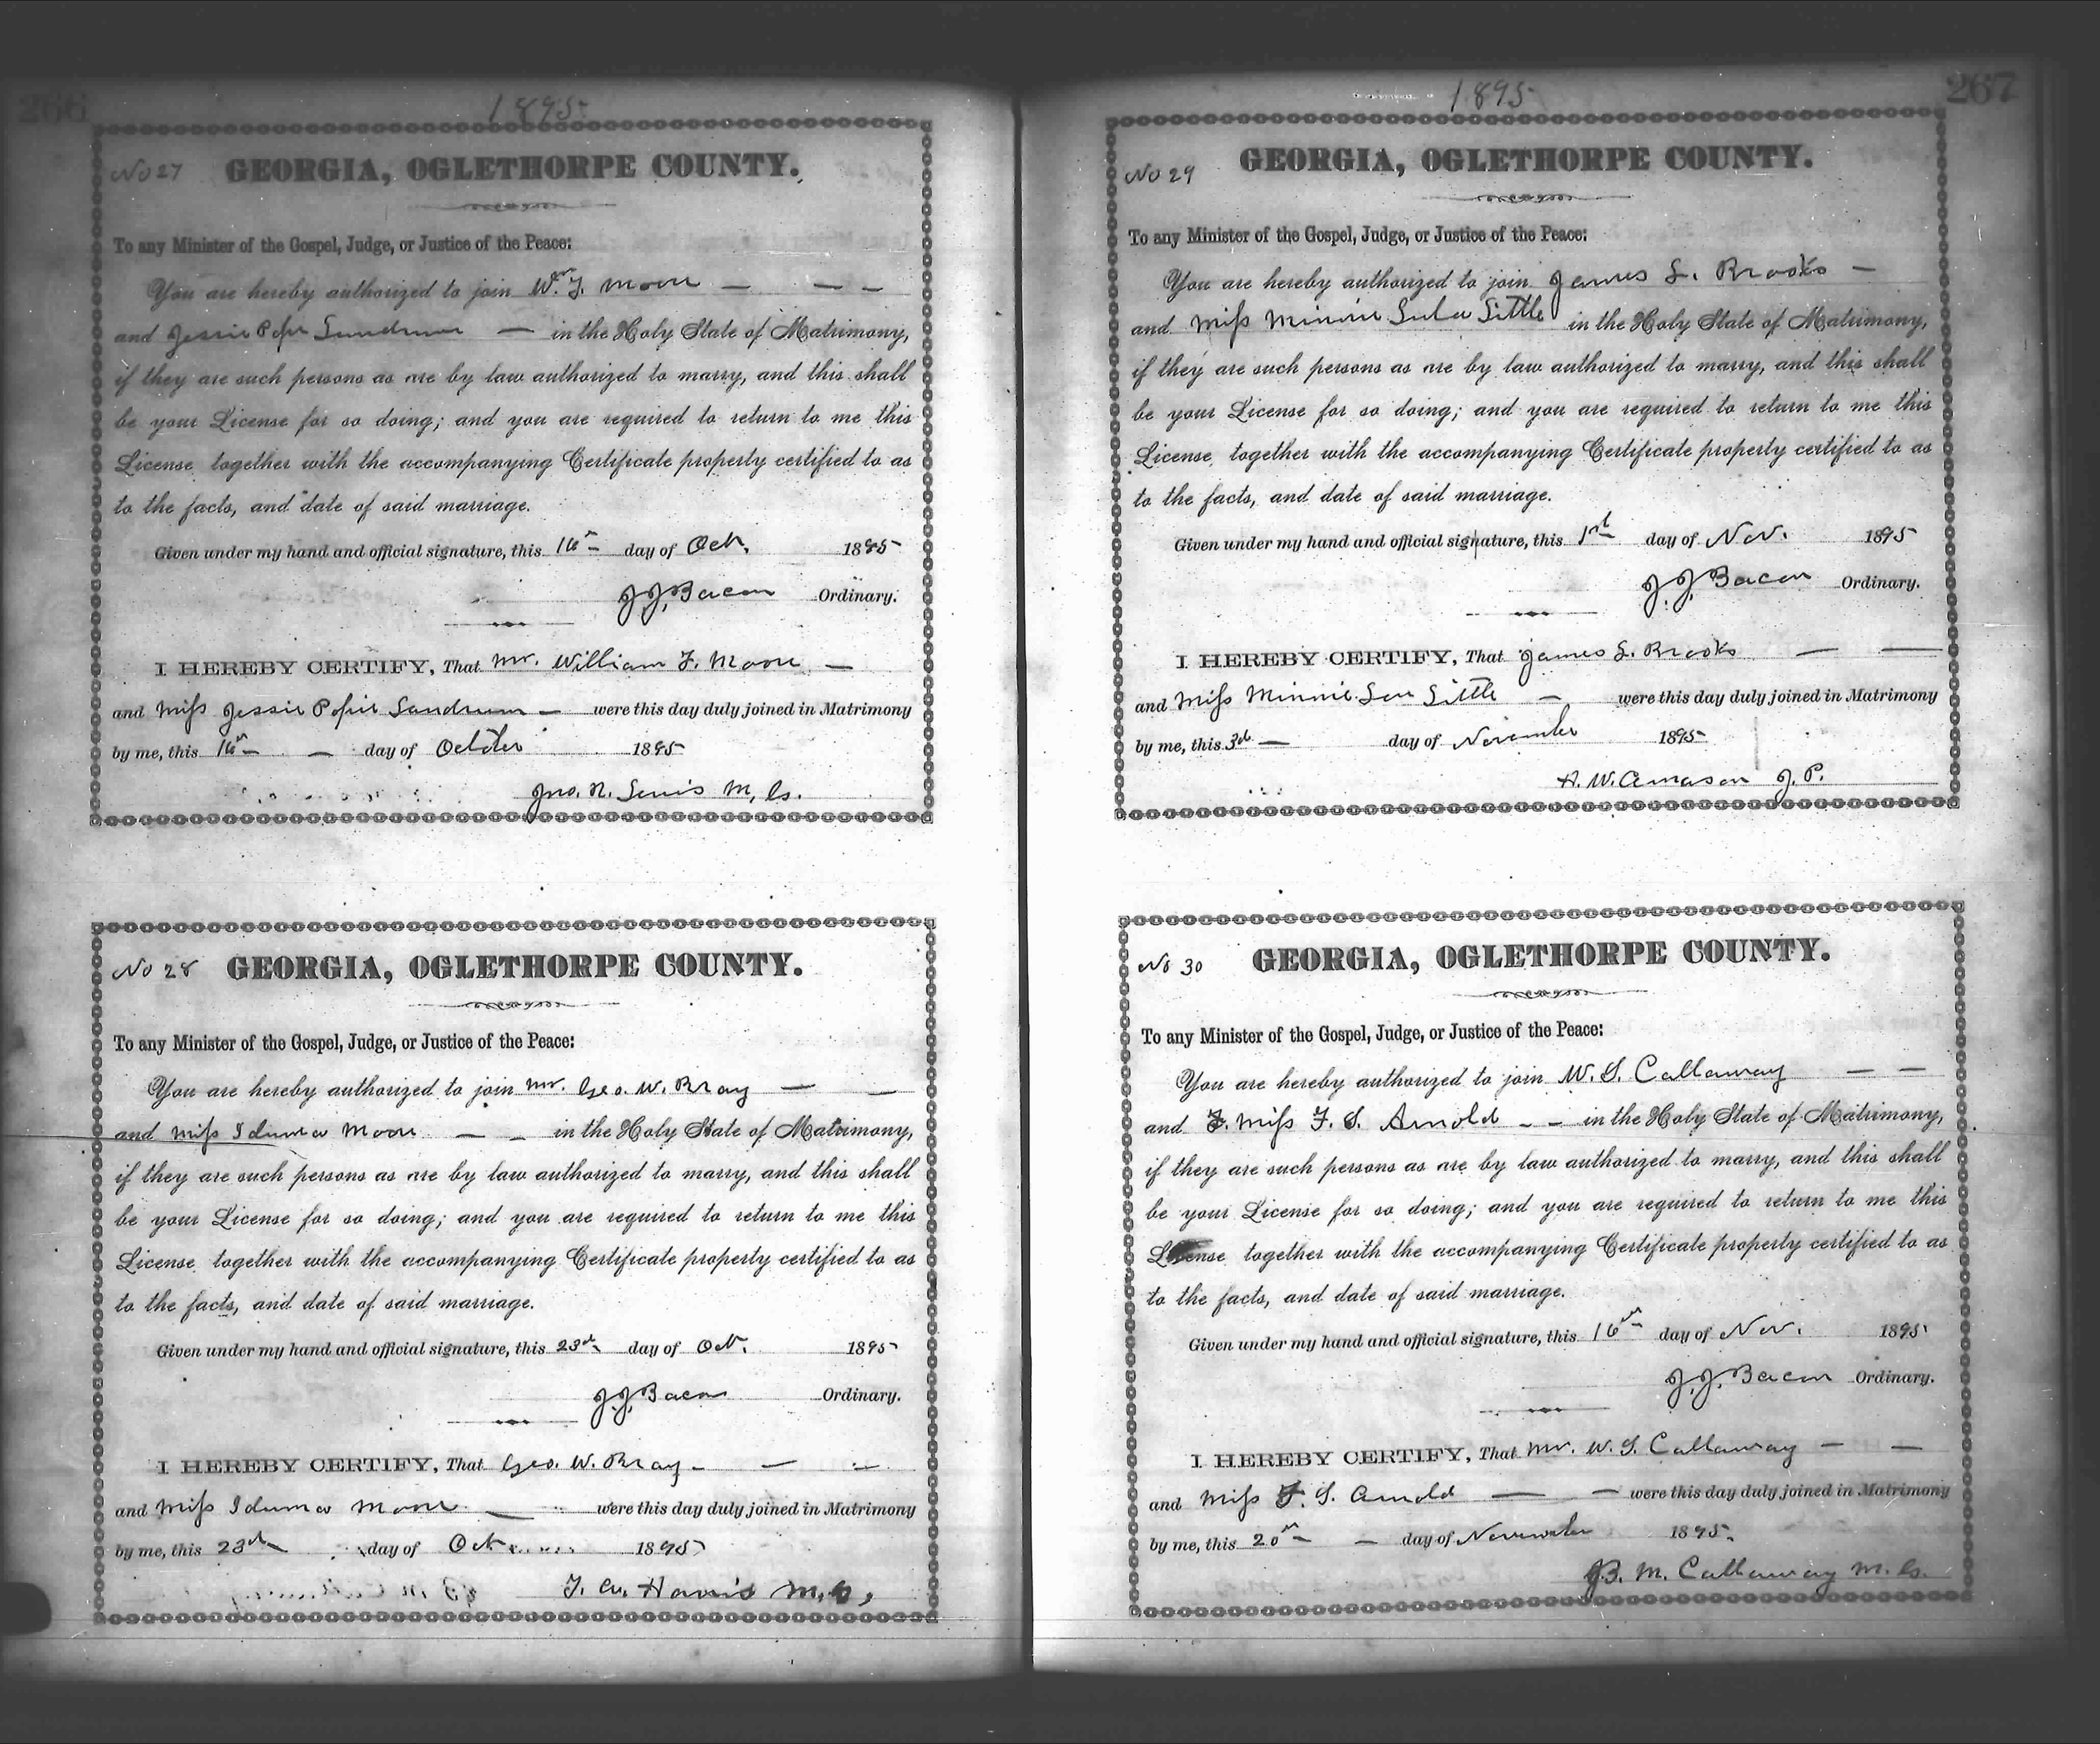 266
1895
No 27 GEORGIA, OGLETHORPE COUNTY.
To any Minister of the Gospel, Judge, or Justice of the Peace:
You are hereby authorized to join Wm. F. Moore
and Jessie Pope Landrum in the Holy State of Matrimony,
if they are such persons as are by law authorized to marry, and this shall
be your License for so doing; and you are required to return to me this
License together with the accompanying Certificate property certified to as
to the facts, and date of said marriage.
Given under my hand and official signature, this 16th day of Oct. 1895
J. J. Bacon Ordinary.
I HEREBY CERTIFY, That Mr. William F. Moore
and Miss Jessie Popie Landrum were this day duly joined in Matrimony
by me, this 16th day of October 1895
Jno. R. Lewis M, G.
No 28 GEORGIA, OGLETHORPE COUNTY.
To any Minister of the Gospel, Judge, or Justice of the Peace:
You are hereby authorized to join Mr. Geo. W. Bray
and Miss Iduma Moore in the Holy State of Matrimony,
if they are such persons as are by law authorized to marry, and this shall
be your License for so doing; and you are required to return to me this
License together with the accompanying Certificate property certified to as
to the facts, and date of said marriage.
Given under my hand and official signature, this 23rd day of Oct. 1895
J. J. Bacon Ordinary.
I HEREBY CERTIFY, That Geo. W. Bray
and Miss Iduma Moore were this day duly joined in Matrimony
by me, this 23rd day of Oct 1895
Harris M, G,
267
1895
No 29 GEORGIA, OGLETHORPE COUNTY.
To any Minister of the Gospel, Judge, or Justice of the Peace:
You are hereby authorized to join James L. Brooks
and Miss Minnie Lula Little in the Holy State of Matrimony,
if they are such persons as are by law authorized to marry, and this shall
be your License for so doing; and you are required to return to me this
License together with the accompanying Certificate property certified to as
to the facts, and date of said marriage.
Given under my hand and official signature, this 1st day of Nov. 1895
J. J. Bacon Ordinary.
I HEREBY CERTIFY, That James L. Brooks
and Miss Minnie Lou Little were this day duly joined in Matrimony
by me, this 3rd day of November 1895
A. W. Amason J. P.
No 30 GEORGIA, OGLETHORPE COUNTY.
To any Minister of the Gospel, Judge, or Justice of the Peace:
You are hereby authorized to join W. S. Callaway
and Miss F. S. Arnold in the Holy State of Matrimony,
if they are such persons as are by law authorized to marry, and this shall
be your License for so doing; and you are required to return to me this
License together with the accompanying Certificate property certified to as
to the facts, and date of said marriage.
Given under my hand and official signature, this 16th day of Nov. 1895
J. J. Bacon Ordinary.
I HEREBY CERTIFY, That Mr. W. S. Callaway
and Miss F. S. Arnold were this day duly joined in Matrimony
by me, this 20th day of November 1895.
B. M. Callaway M. G.